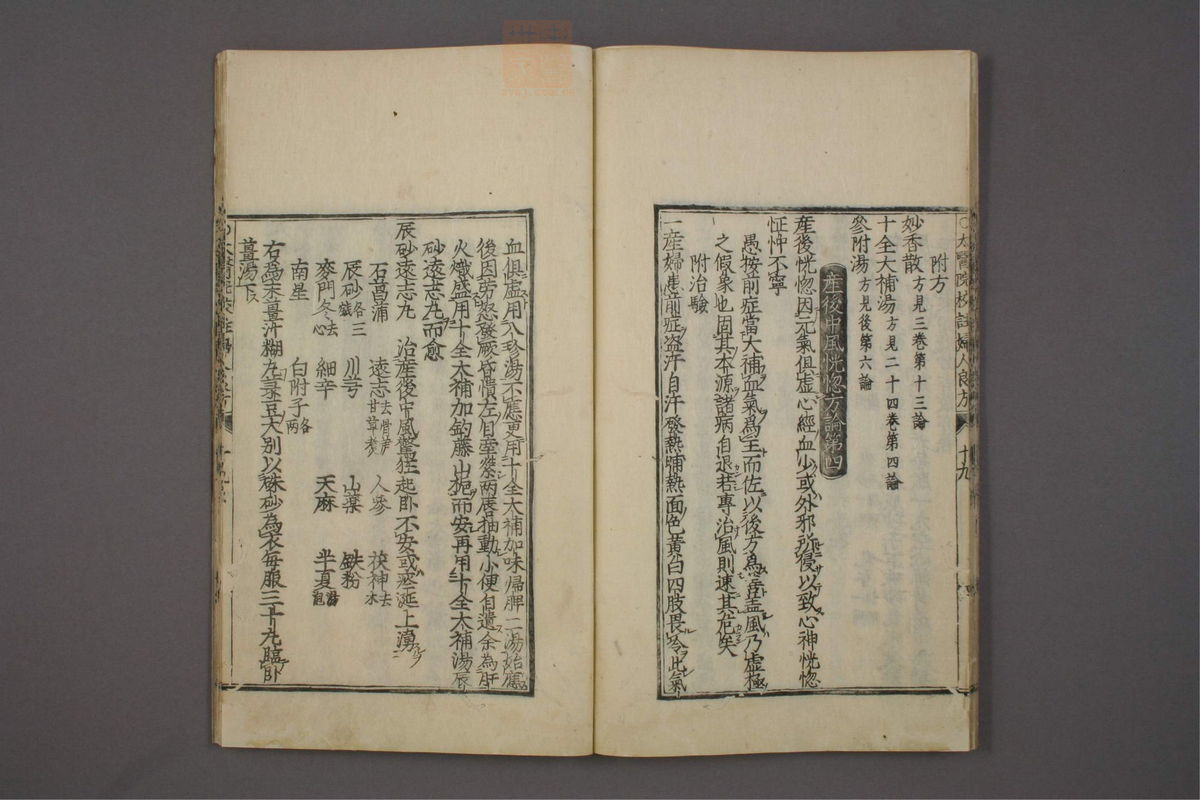 太醫院校註婦人良方 十九
附方
妙香散方見三卷第十三論
十全大補湯方見二十四卷第四論
參附湯方見後第六論
産後中風恍惚方論第四
産後恍惚因元氣俱虛心經血少或外邪所侵以致心神恍惚
怔忡不寧
愚按前症當大補血氣爲主而佐以後方爲善盖風乃虛極
之假象也固其本源諸病自退若專治風則速其危矣
附治驗
一産婦患前症盗汗自汗發熱晡熱面色黃白四肢畏冷此氣
血俱虛用八珍湯不應更用十全大補加味歸脾二湯始應
後因勞怒發厥昏憒左目牽緊兩唇抽動小便自遺余為肝
火熾盛用十全大補加鈎藤山梔而安再用十全大補湯辰
砂遠志丸而愈
辰砂遠志丸 治産後中風驚狂起卧不安或痰涎上湧
石菖蒲 遠志去骨甘草煑 人參 茯神去木
辰砂各三錢 川芎 山藥 鉄粉
麥門冬去心 細辛 天麻 半夏湯泡
南星 白附子各一兩
右為末薑汁糊丸菉豆大別以硃砂為衣每服三十丸臨卧
薑湯下